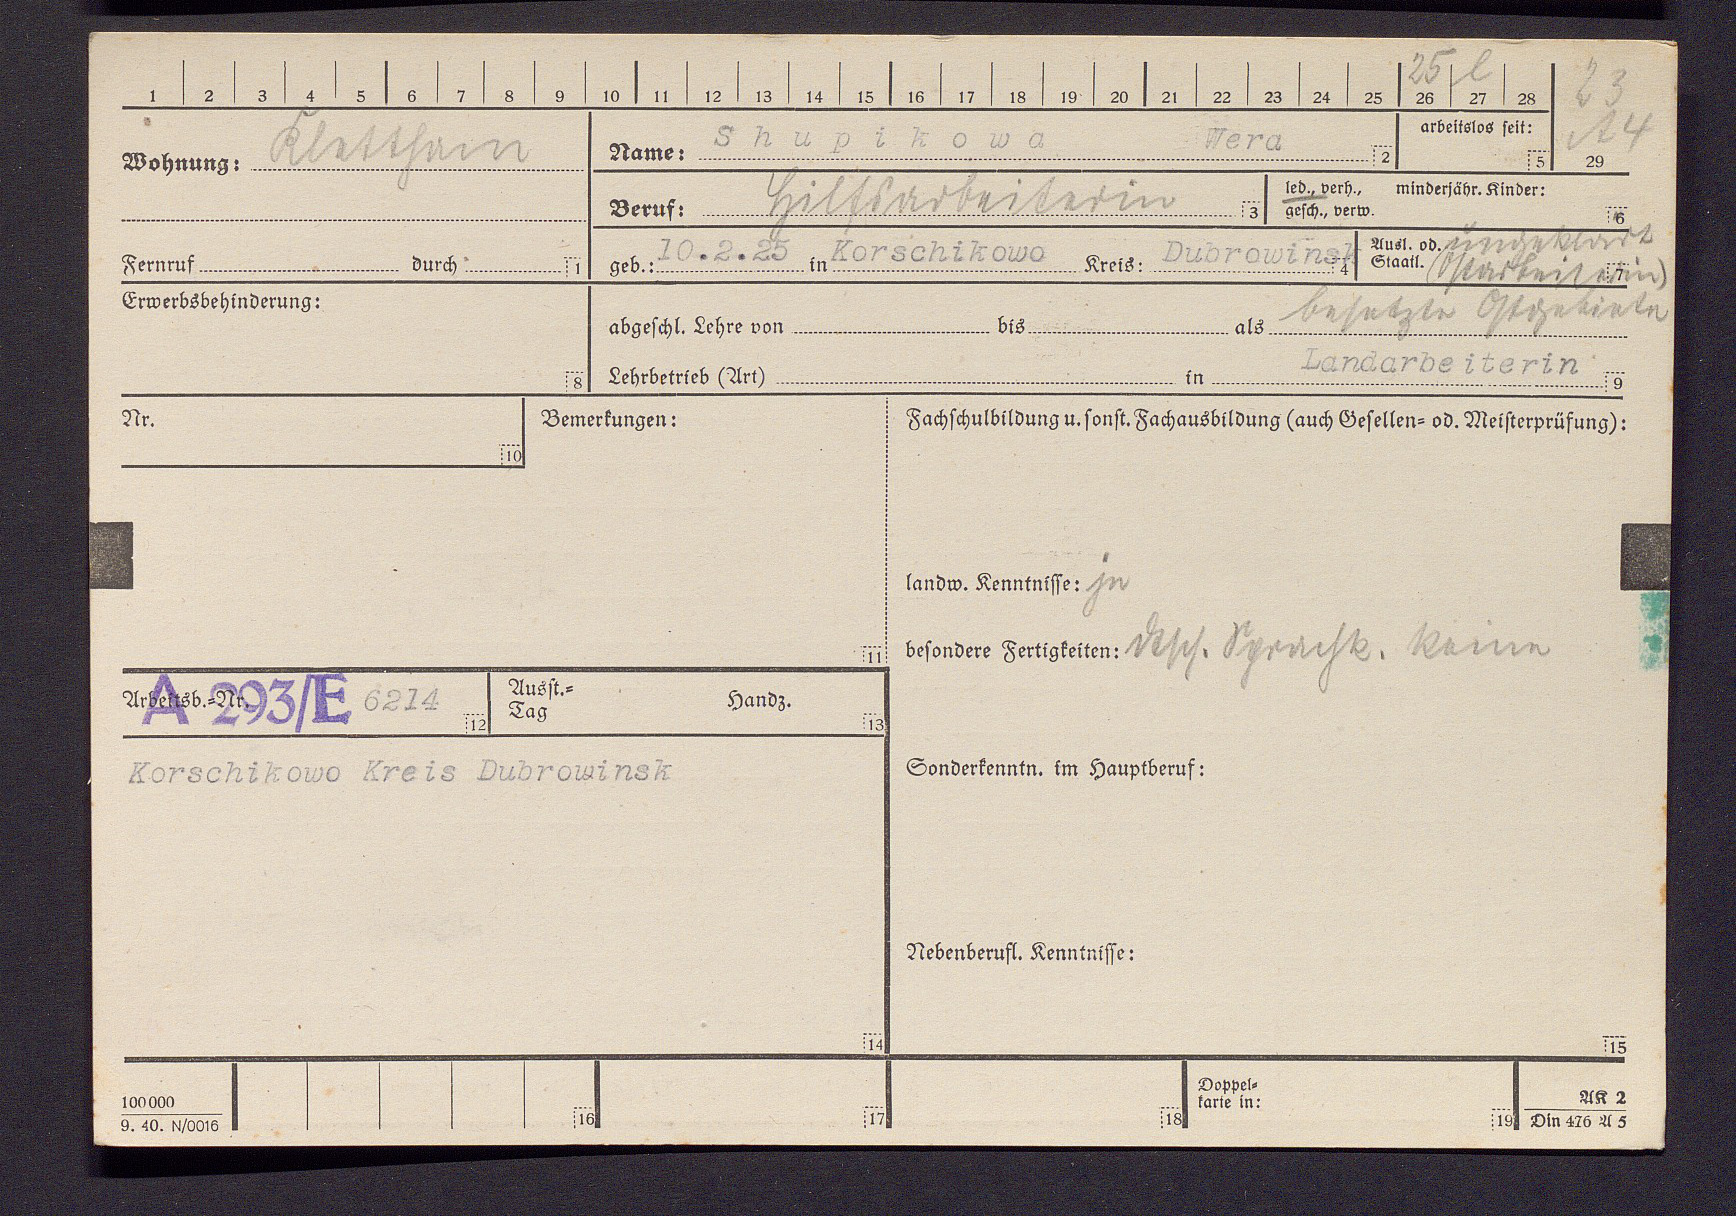 25 l 23
1 2 3 4 5 6 7 8 9 10 11 12 13 14 15 16 17 18 19 20 21 22 23 24 25 26 27 28
A4
29
Wohnung: Klettham
Name: Shupikowa Wera 2
arbeitslos seit: 5
Beruf: Hilfsarbeiterin 3
led., verh., minderjähr. Kinder:
gesch., verw. 6
Fernruf durch 1
geb.: 10.2.25 in Korschikowo Kreis: Dubrowinsk 4
Ausl. od. ungeklärt
Staatl. (Ostarbeiterin) 7
besetzte Ostgebiete
Erwerbsbehinderung:
8
abgeschl. Lehre von bis als
Landarbeiterin
Lehrbetrieb (Art) in 9
Nr.
10
Bemerkungen:
11
Fachschulbildung u. sonst. Fachausbildung (auch Gesellen- od. Meisterprüfung):
landw. Kenntnisse: ja
besondere Fertigkeiten: dtsch. Sprachk. keine
Arbeitsb.-Nr. A 293/E 6214 12
Ausst.-
Tag Handz. 13
Korschikowo Kreis Dubrowinsk
14
Sonderkenntn. im Hauptberuf:
Nebenberufl. Kenntnisse:
15
100 000
9. 40. N/0016
16
17
18
Doppel-
karte in:
19
AK 2
Din 476 A 5